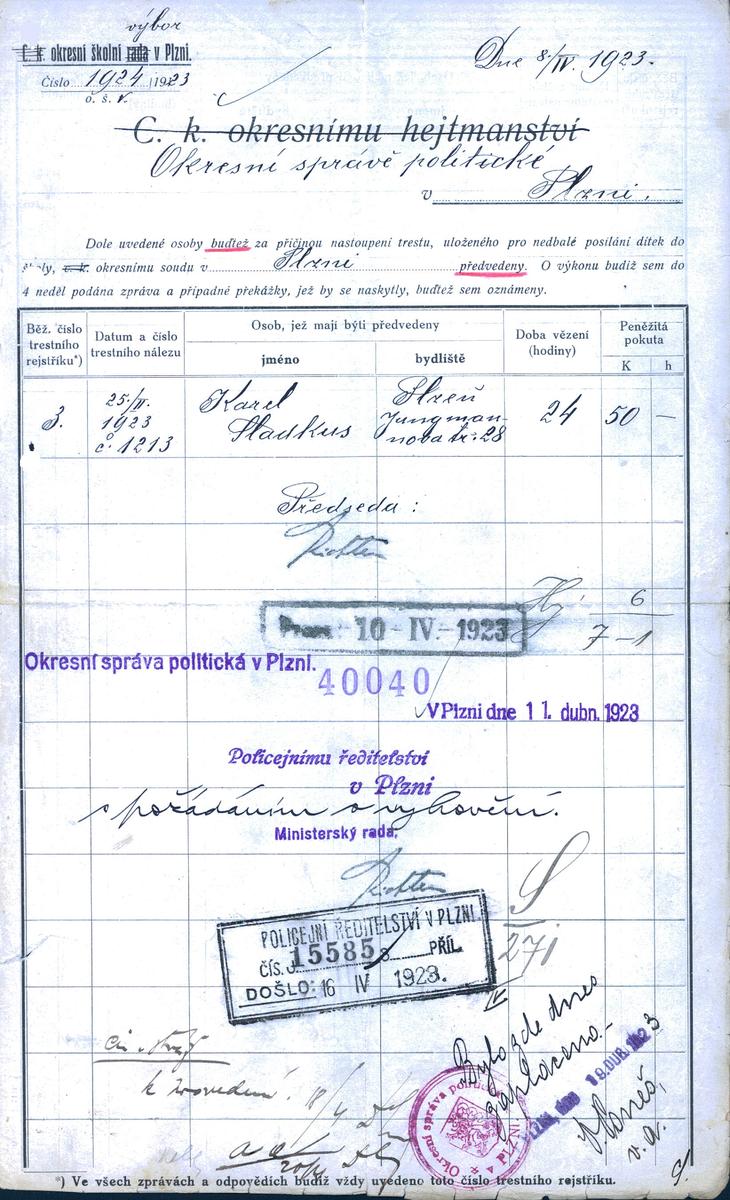 výbor
C. k. okresní školní rada v Plzni.
Číslo 1924/1923
o. š. v.
Dne 8./IV. 1923.
C. k. okresnímu hejtmanství
Okresní správě politické
v Plzni.
Dole uvedené osoby buďtež za příčinou nastoupení trestu, uloženého pro nedbalé posílání dítek do
školy, c. k. okresnímu soudu v Plzni předvedeny. O výkonu budiž sem do
4 neděl podána zpráva a případné překážky, jež by se naskytly, buďtež sem oznámeny.
Běž. číslo trestního rejstříku*)
Datum a číslo trestního nálezu
Osob, jež mají býti předvedeny
jméno
bydliště
Doba vězení (hodiny)
Peněžitá pokuta
K h
3. 25./II. 1923 č. 1213 Karel Sladkus Plzeň Jungmannova tř. 28 24 50 —
Předseda:
Richter
6
7-1
10 - IV. - 1923
Okresní správa politická v Plzni.
40040
V Plzni dne 11. dubn. 1923
Policejnímu ředitelství
v Plzni
s požádáním o vyhovění.
Ministerský rada:
Richter
POLICEJNÍ ŘEDITELSTVÍ V PLZNI
ČÍS. J. 15585 PŘÍL.
DOŠLO: 16 IV 1923.
27/
Bylo zde dnes
zaplaceno.-
PLZEŇ, dne 19. DUB. 1923
v. a.
k provedení 18/4
Okresní správa politická v PLZNI
*) Ve všech zprávách a odpovědích budiž vždy uvedeno toto číslo trestního rejstříku.